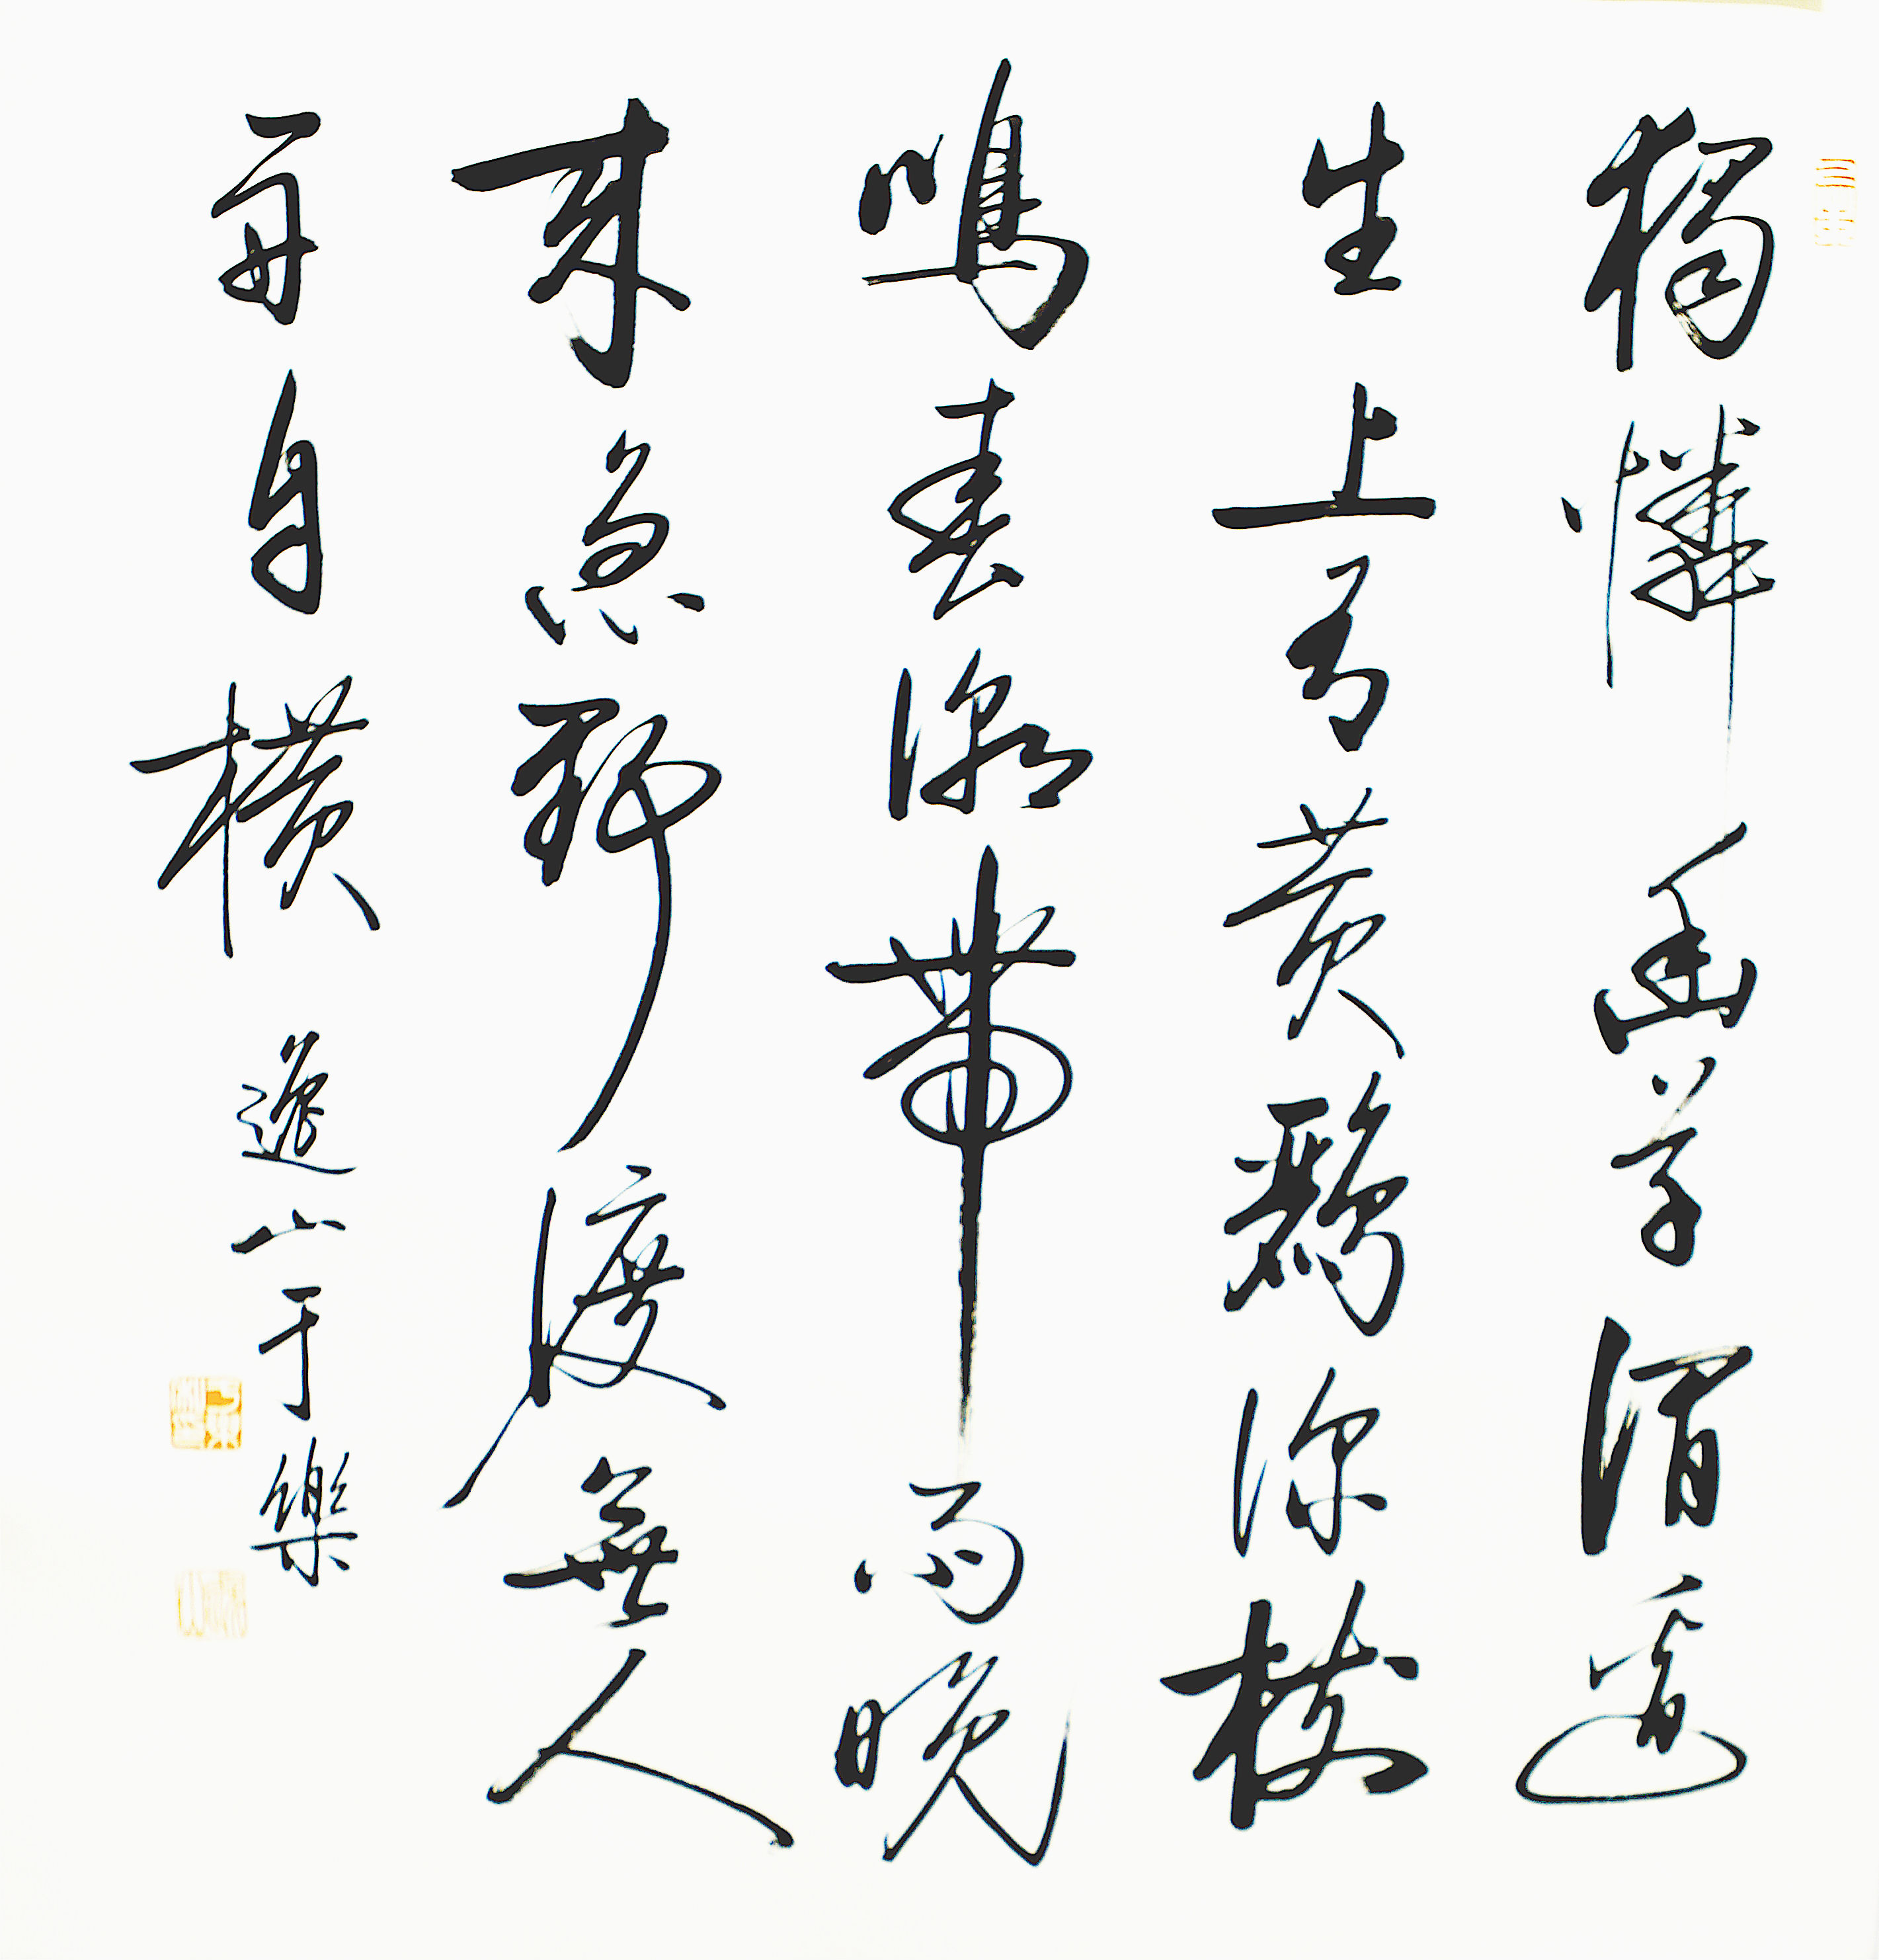 獨憐幽草澗邊
生上有黃鸝深樹
鳴春潮帶雨晚
來急野渡無人
舟自橫 逸山于樂